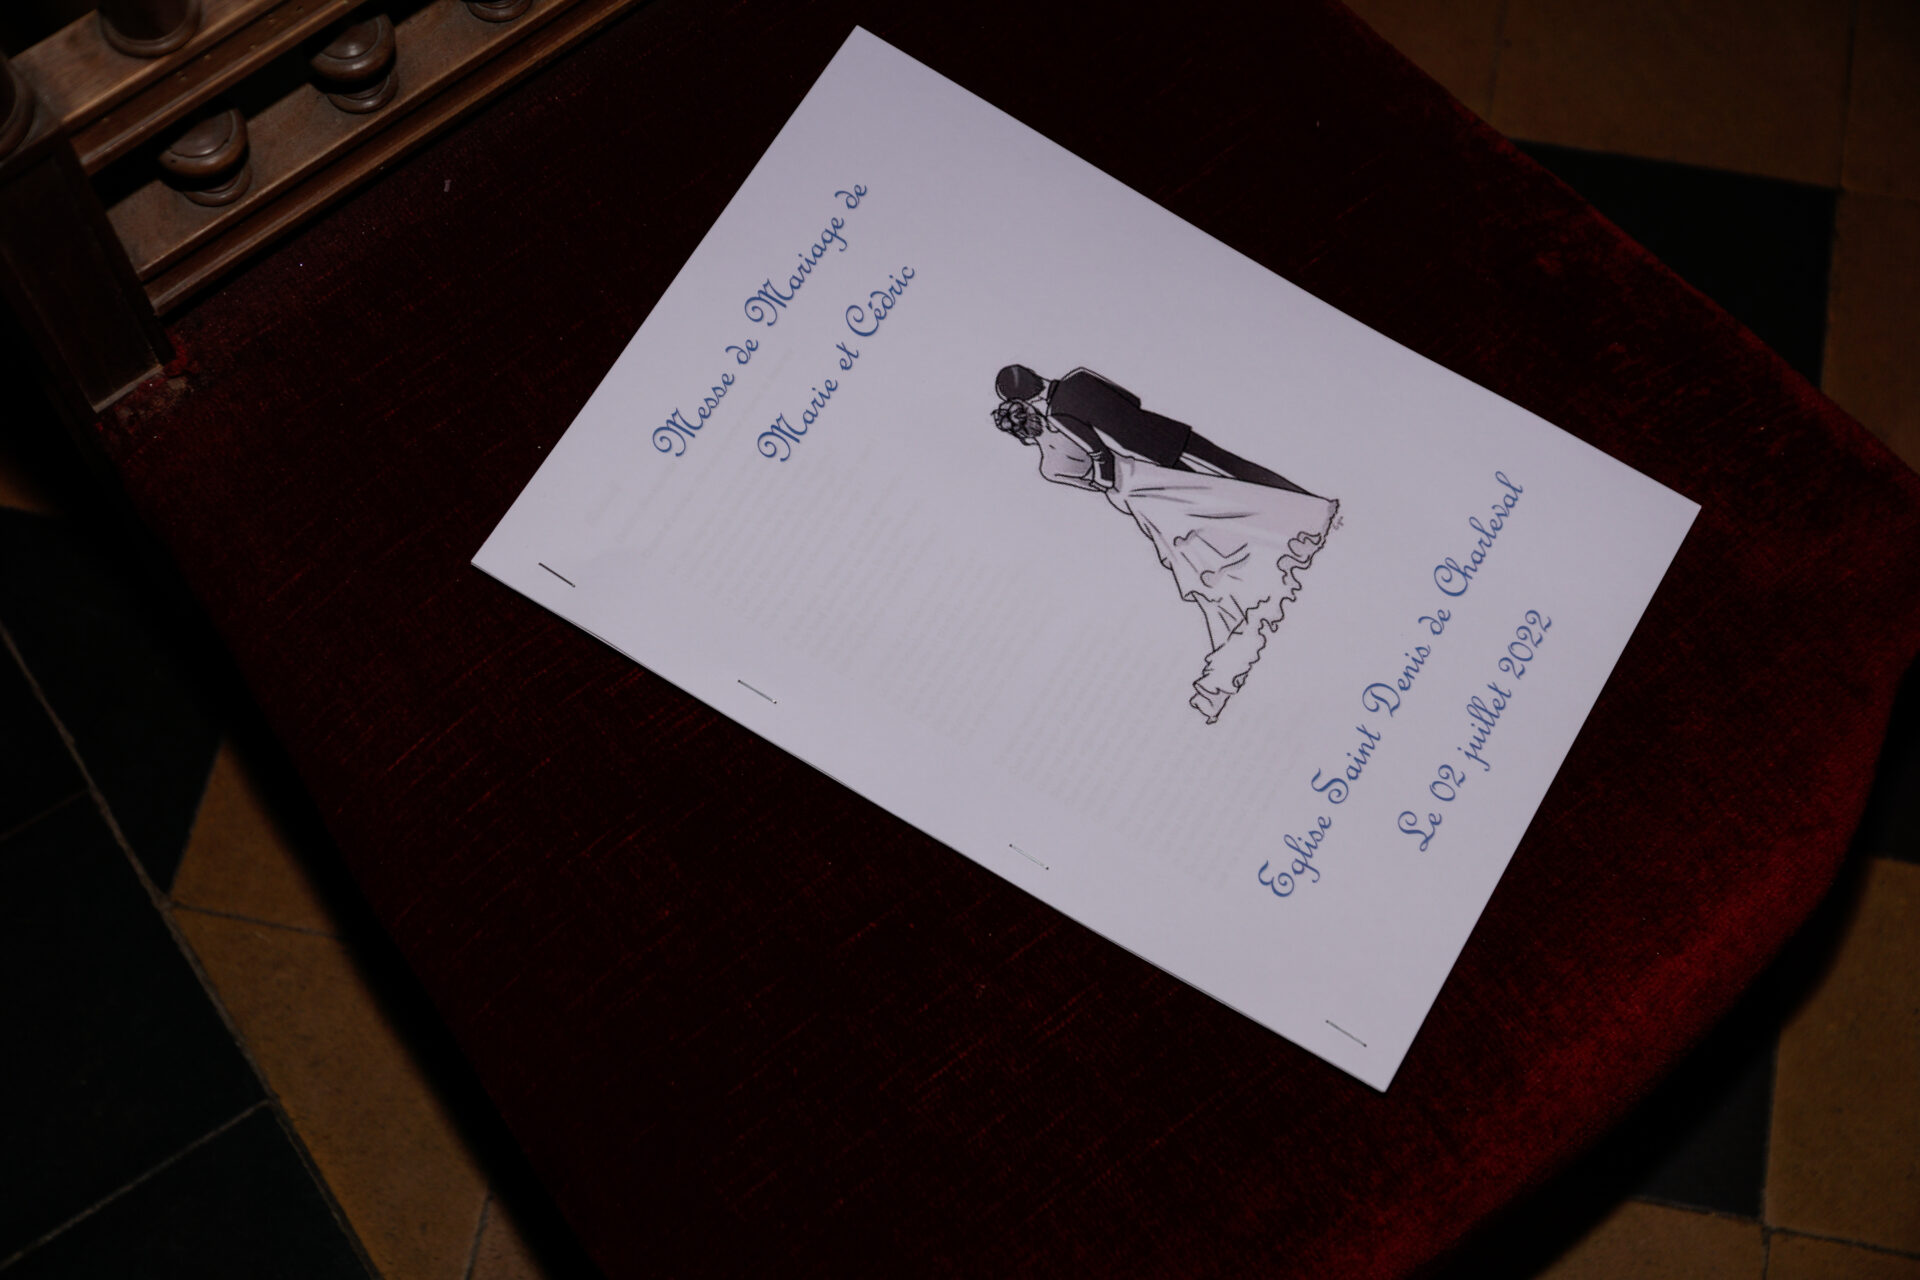 Messe de Mariage de
Marie et Cédric
Eglise Saint Denis de Charleval
Le 02 juillet 2022